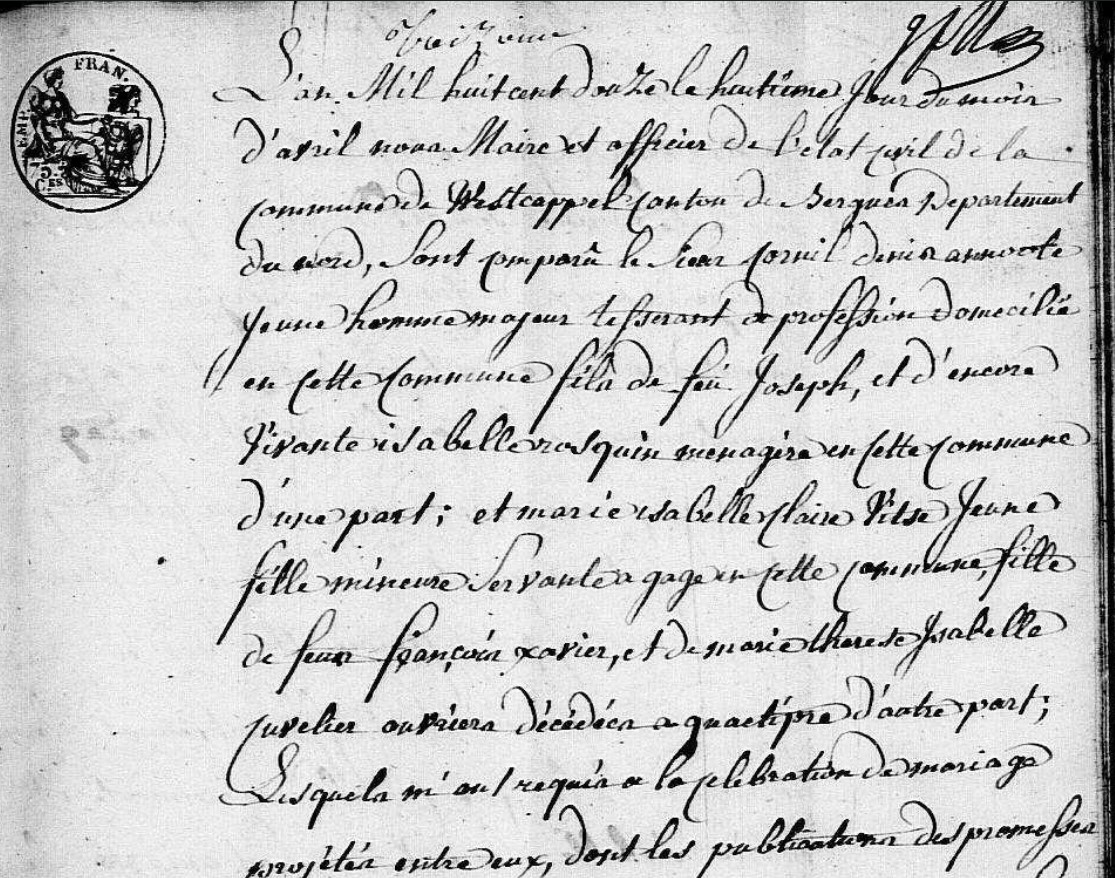 FRAN.
EMP.
75.
C.ES
L'an Mil huit cent douze le huitième Jour du mois
d'avril nous Maire et officier de l'etat civil de la
commune de Westcappel Canton de Bergues Departement
du nord, Sont comparû le Sieur Cornil denis annoote
jeune homme majeur tisserant de profession domecilié
en cette Commune fils de feü Joseph, et d'encore
Vivante isabelle rosquin menagère en cette commune
d'une part; et marie isabelle Claire Vitse Jeune
fille mineure Servante a gage en cette commune, fille
de feus françois xavier, et de marie therese Isabelle
Cuvelier ouvriers décédés a quaetipre d'autre part;
Lesquels m'ont requis a la celebration de mariage
projétés entre eux, dont les publications des promesses